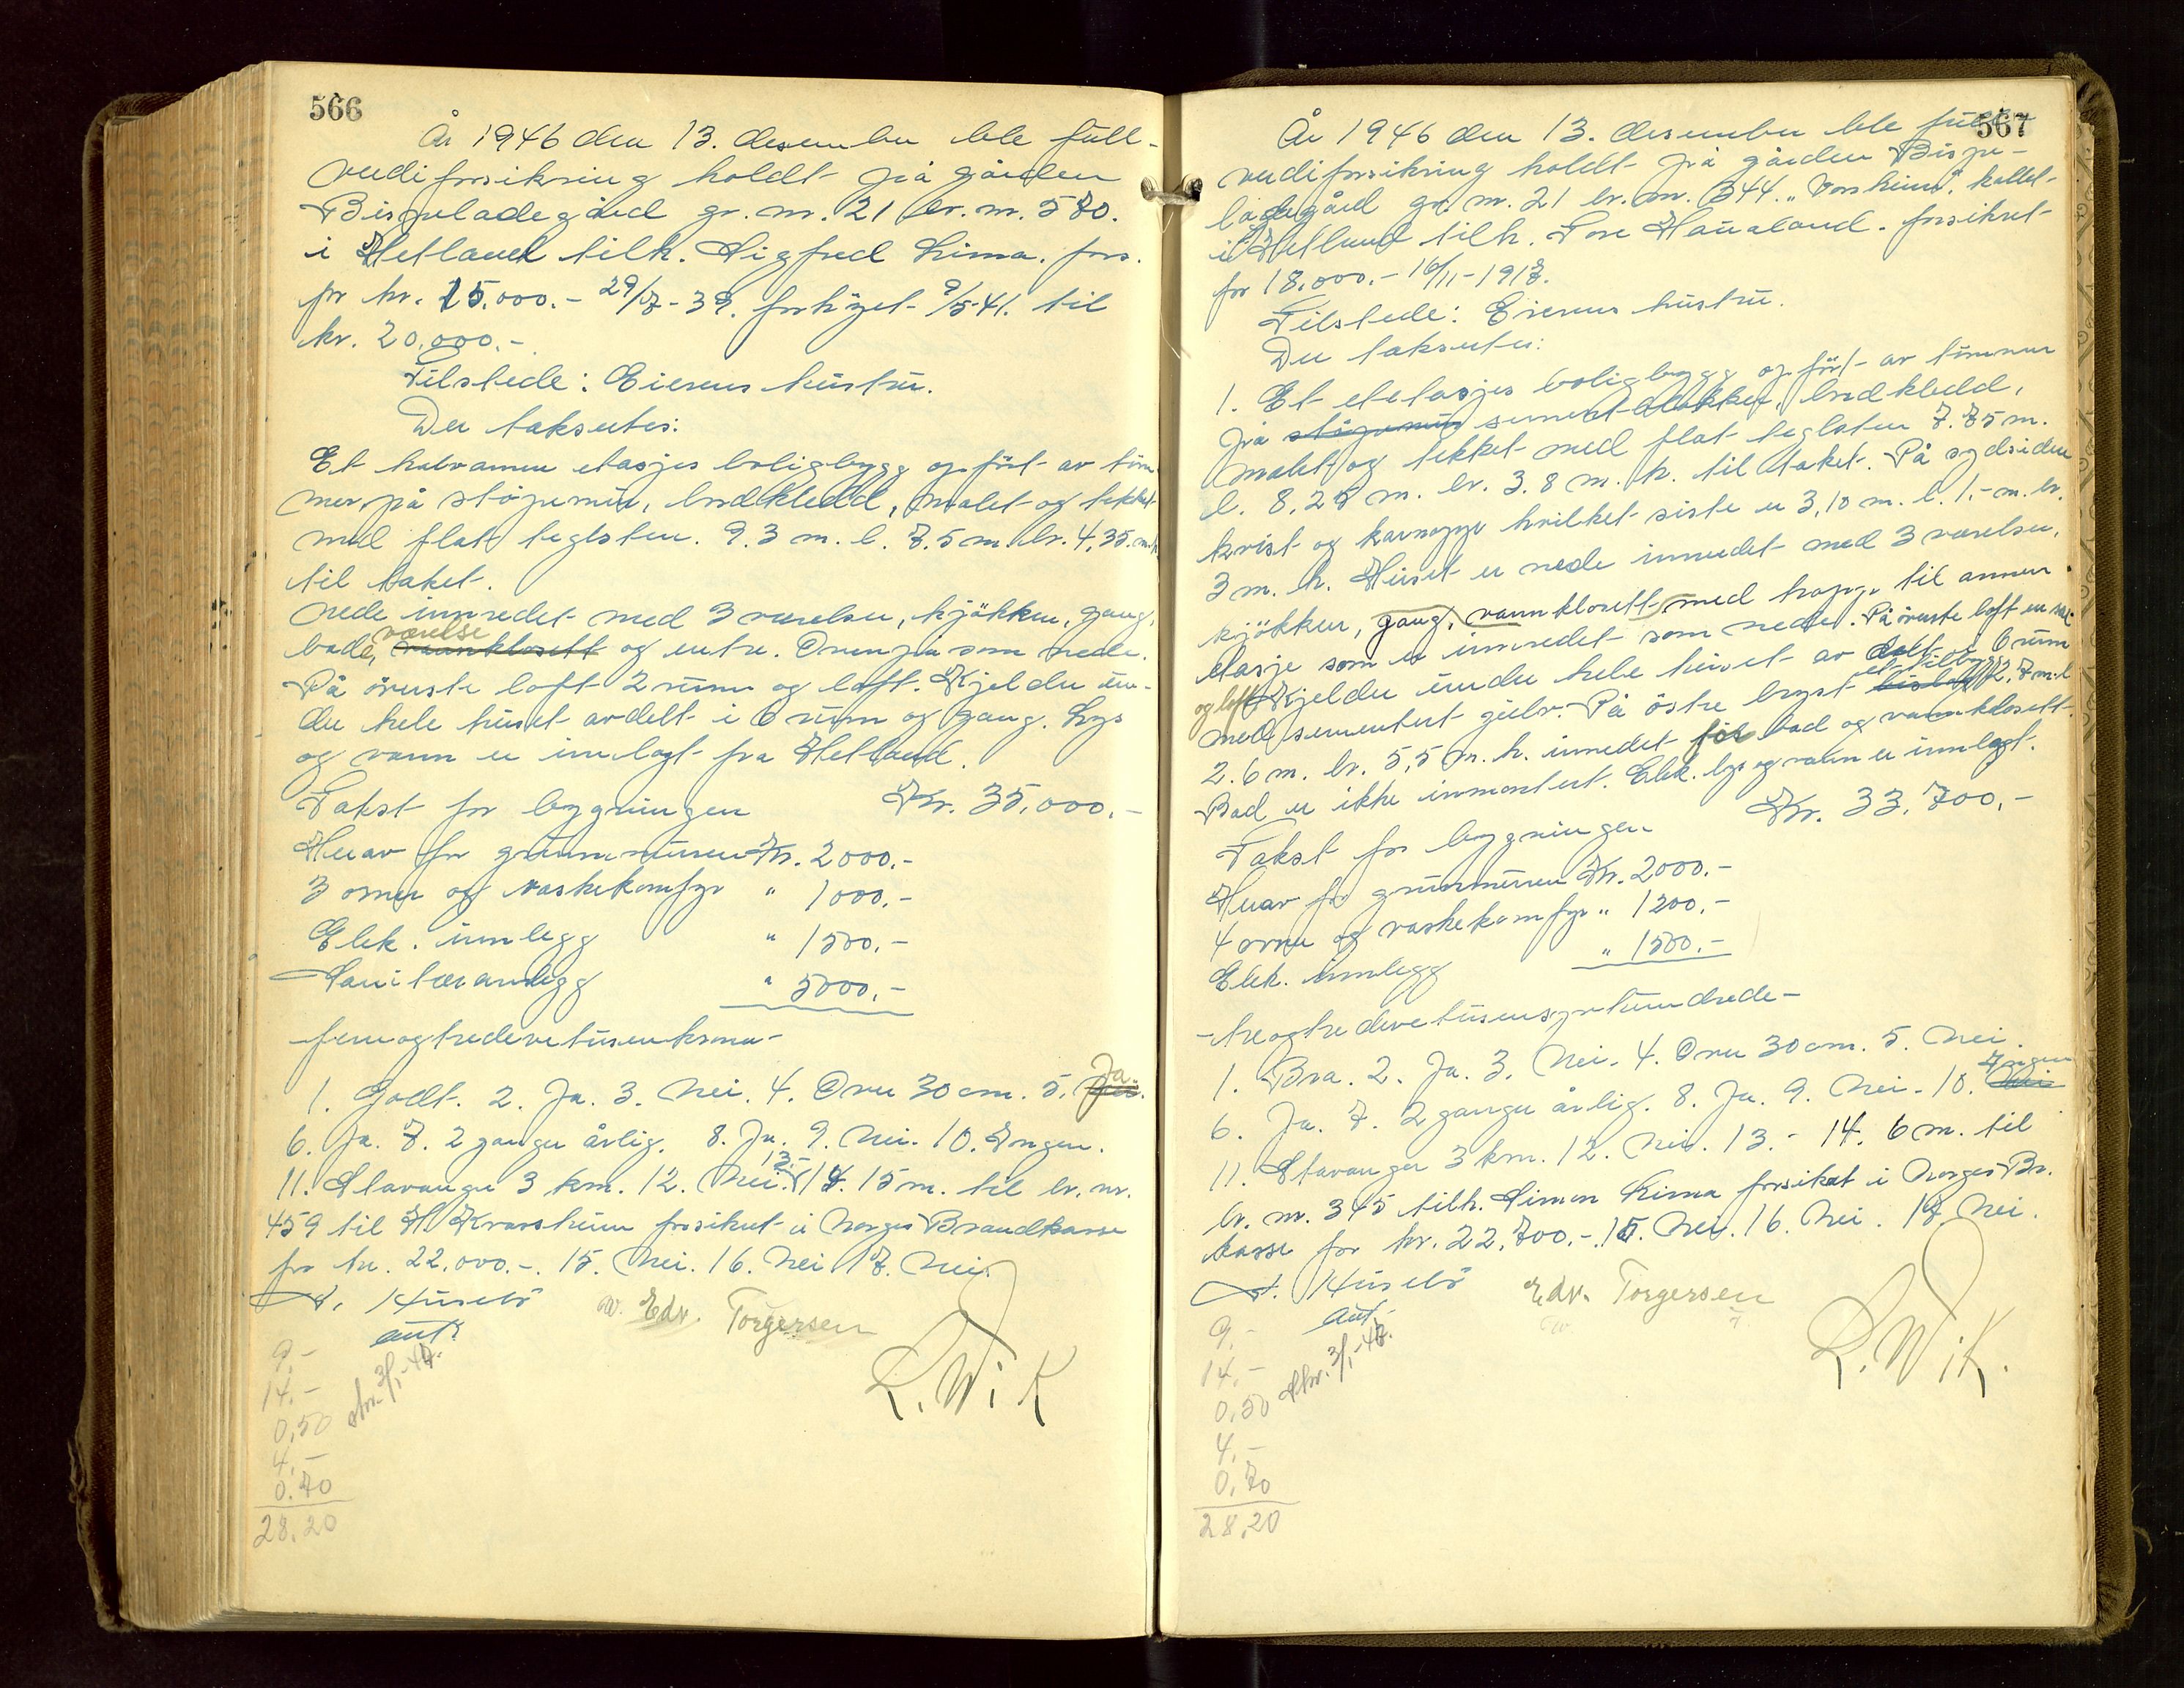 566
År 1946 den 13. desember ble full-
verdiforsikring holdt på gården
Bispeladegård gr. nr. 21 br. nr. 580.
i Hetland tilh. Sigfred Lima. fors.
for kr. 15.000.- 29/7-39. forhöyet 9/5-41. til
kr. 20.000.-
Tilstede: Eierens hustru.
Der takseres:
Et halvannen etasjes boligbygg opfört av töm
mer på stöpemur, bordkledd, malet og tekket
med flat teglsten. 9.3 m. l. 7.5 m. br. 4,35. m.h.
til taket.
Nede innredet med 3 værelser, kjökken, gang,
bad, værelse vannklosett og entre. Ovenpå som nede.
På överste loft 2 rum og loft. Kjelder un-
der hele huset avdelt i 6 rum og gang. Lys
og vann er innlagt fra Hetland.
Takst for bygningen Kr. 35.000.-
Herav for grunnmuren Kr. 2000.-
3 ovner og vaskekomfyr " 1000.-
Elek. innlegg " 1500.-
Sanitæranlegg " 5000.-
femogtredevetusenkroner-
1. Godt. 2. Ja. 3. Nei. 4. Over 30 cm. 5. Ja.
6. Ja. 7. 2 ganger årlig. 8. Ja. 9. Nei. 10. Ingen.
11. Stavanger 3 km. 12. Nei. 13.- 14. 15 m. til br. nr.
459 til H. Kvarsheim forsikret i Norges Brandkasse
for kr. 22.000.-. 15. Nei. 16. Nei 17. Nei.
A. Husebö W. Edv. Torgersen
R. Wik
aut.
skr. 3/1-47.
9.-
14.-
0,50
4.-
0.70
28,20
567
År 1946 den 13. desember ble full-
verdiforsikring holdt på gården Bispe-
ladegård gr. nr. 21 br. nr. 344. "Vorheim". kallet
i Hetland tilh. Tore Haualand. forsikret
for 18.000.- 16/11-1917.
Tilstede: Eierens hustru.
Der takseres:
1. Et etetasjes boligbygg opfört av tömmer
på stöpemur sementblokker, bordkledd,
malet og tekket med flat teglsten 7.75 m.
l. 8,25 m. br. 3.8 m. h. til taket. På sydsiden
kvist og karnapp hvilket siste er 3,10 m. l. 1.- m. br.
3 m. h. Huset er nede innredet med 3 værelser,
kjökken, gang, vannklosett med trapp til annen
etasje som er innredet som nede. På överste loft en sal
og loft Kjelder under hele huset av delt og 6 rum
med sementert gulv. På östre bryst et tilbygg 2,7 m. l
2.6 m. br. 5,5 m. h. innredet for bad og vannklosett.
Bad er ikke innmontert. Elek. lys og vann er innlagt.
Takst for bygningen Kr. 33.700.-
Herav for grunnmuren Kr. 2000.-
4 ovner og vaskekomfyr " 1200.-
Elek. innlegg " 1500.-
-treogtredevetusensyvhundrede-
1. Bra. 2. Ja. 3. Nei. 4. Over 30 cm. 5. Nei.
6. Ja. 7. 2 ganger årlig. 8. Ja. 9. Nei. 10. Nei Ingen
11. Stavanger 3 km. 12. Nei. 13.- 14. 6 m. til
br. nr. 345 tilh. Simon Lima forsikret i Norges Br.
kasse for kr. 22.700.-. 15. Nei. 16. Nei. 17. Nei.
A. Husebö Edv. Torgersen
R. Wik.
aut.
skr. 3/1-47.
9.-
14.-
0,50
4.-
0,70
28,20